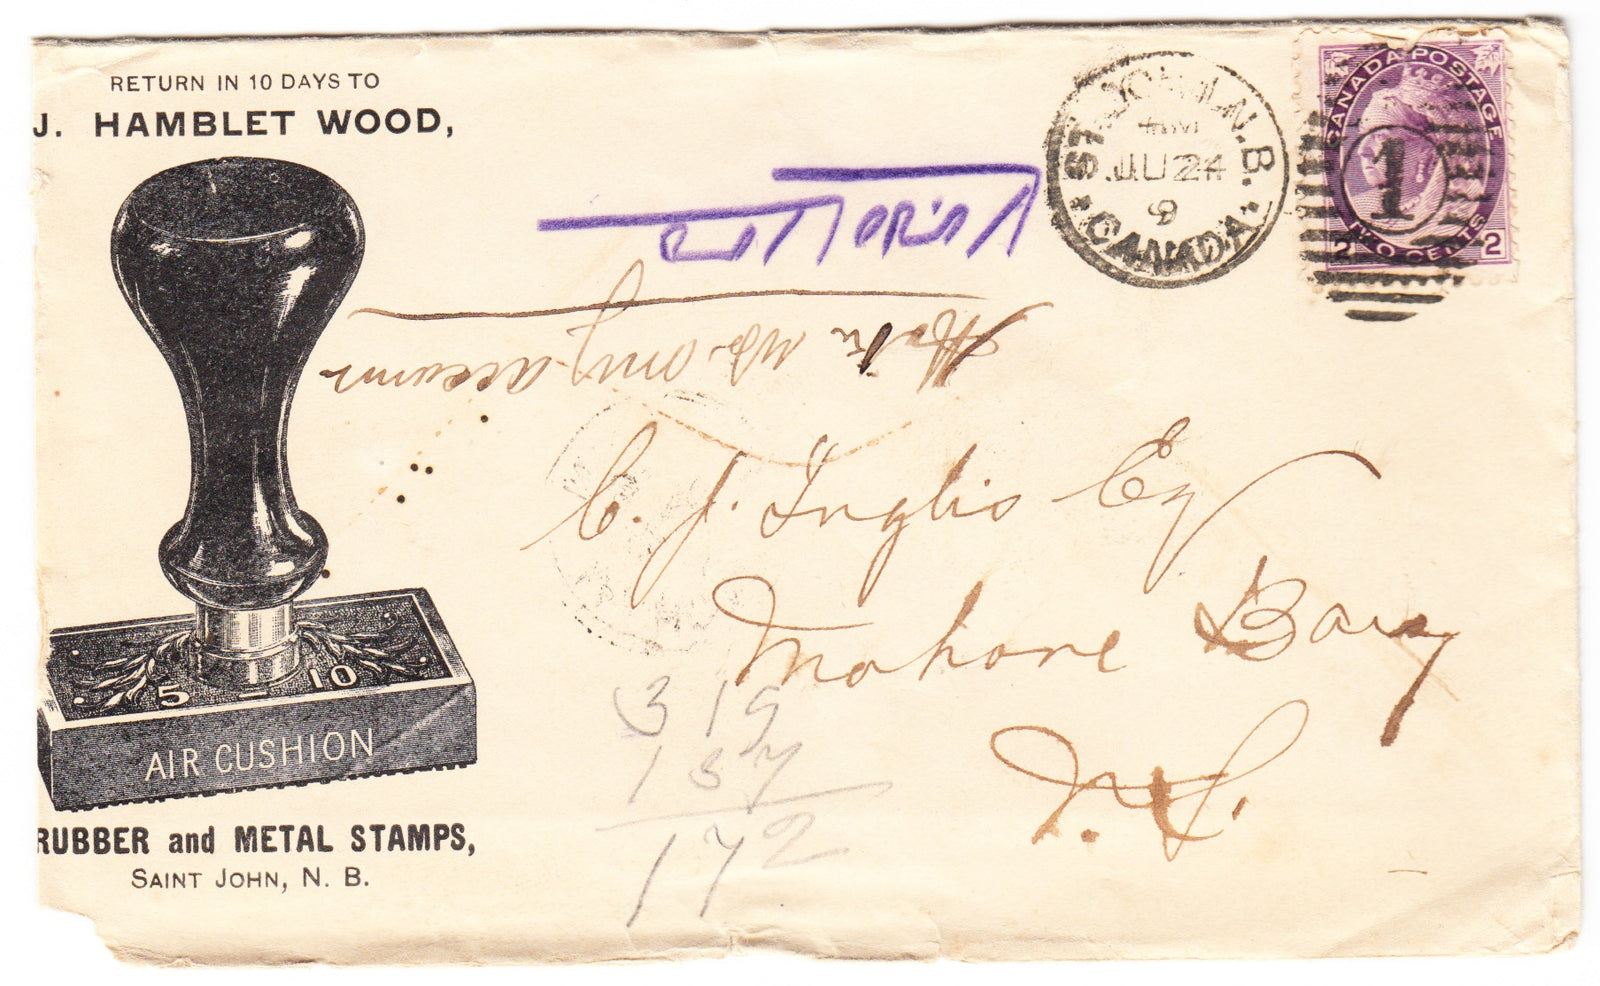 RETURN IN 10 DAYS TO
J. HAMBLET WOOD,
5 - 10
AIR CUSHION
RUBBER and METAL STAMPS,
SAINT JOHN, N. B.
ST. JOHN, N.B.
JU 24
9
CANADA
CANADA POSTAGE
1
2 TWO CENTS 2
C. J. Inglis Esq
Mahone Bay
N.S.
319
137
172